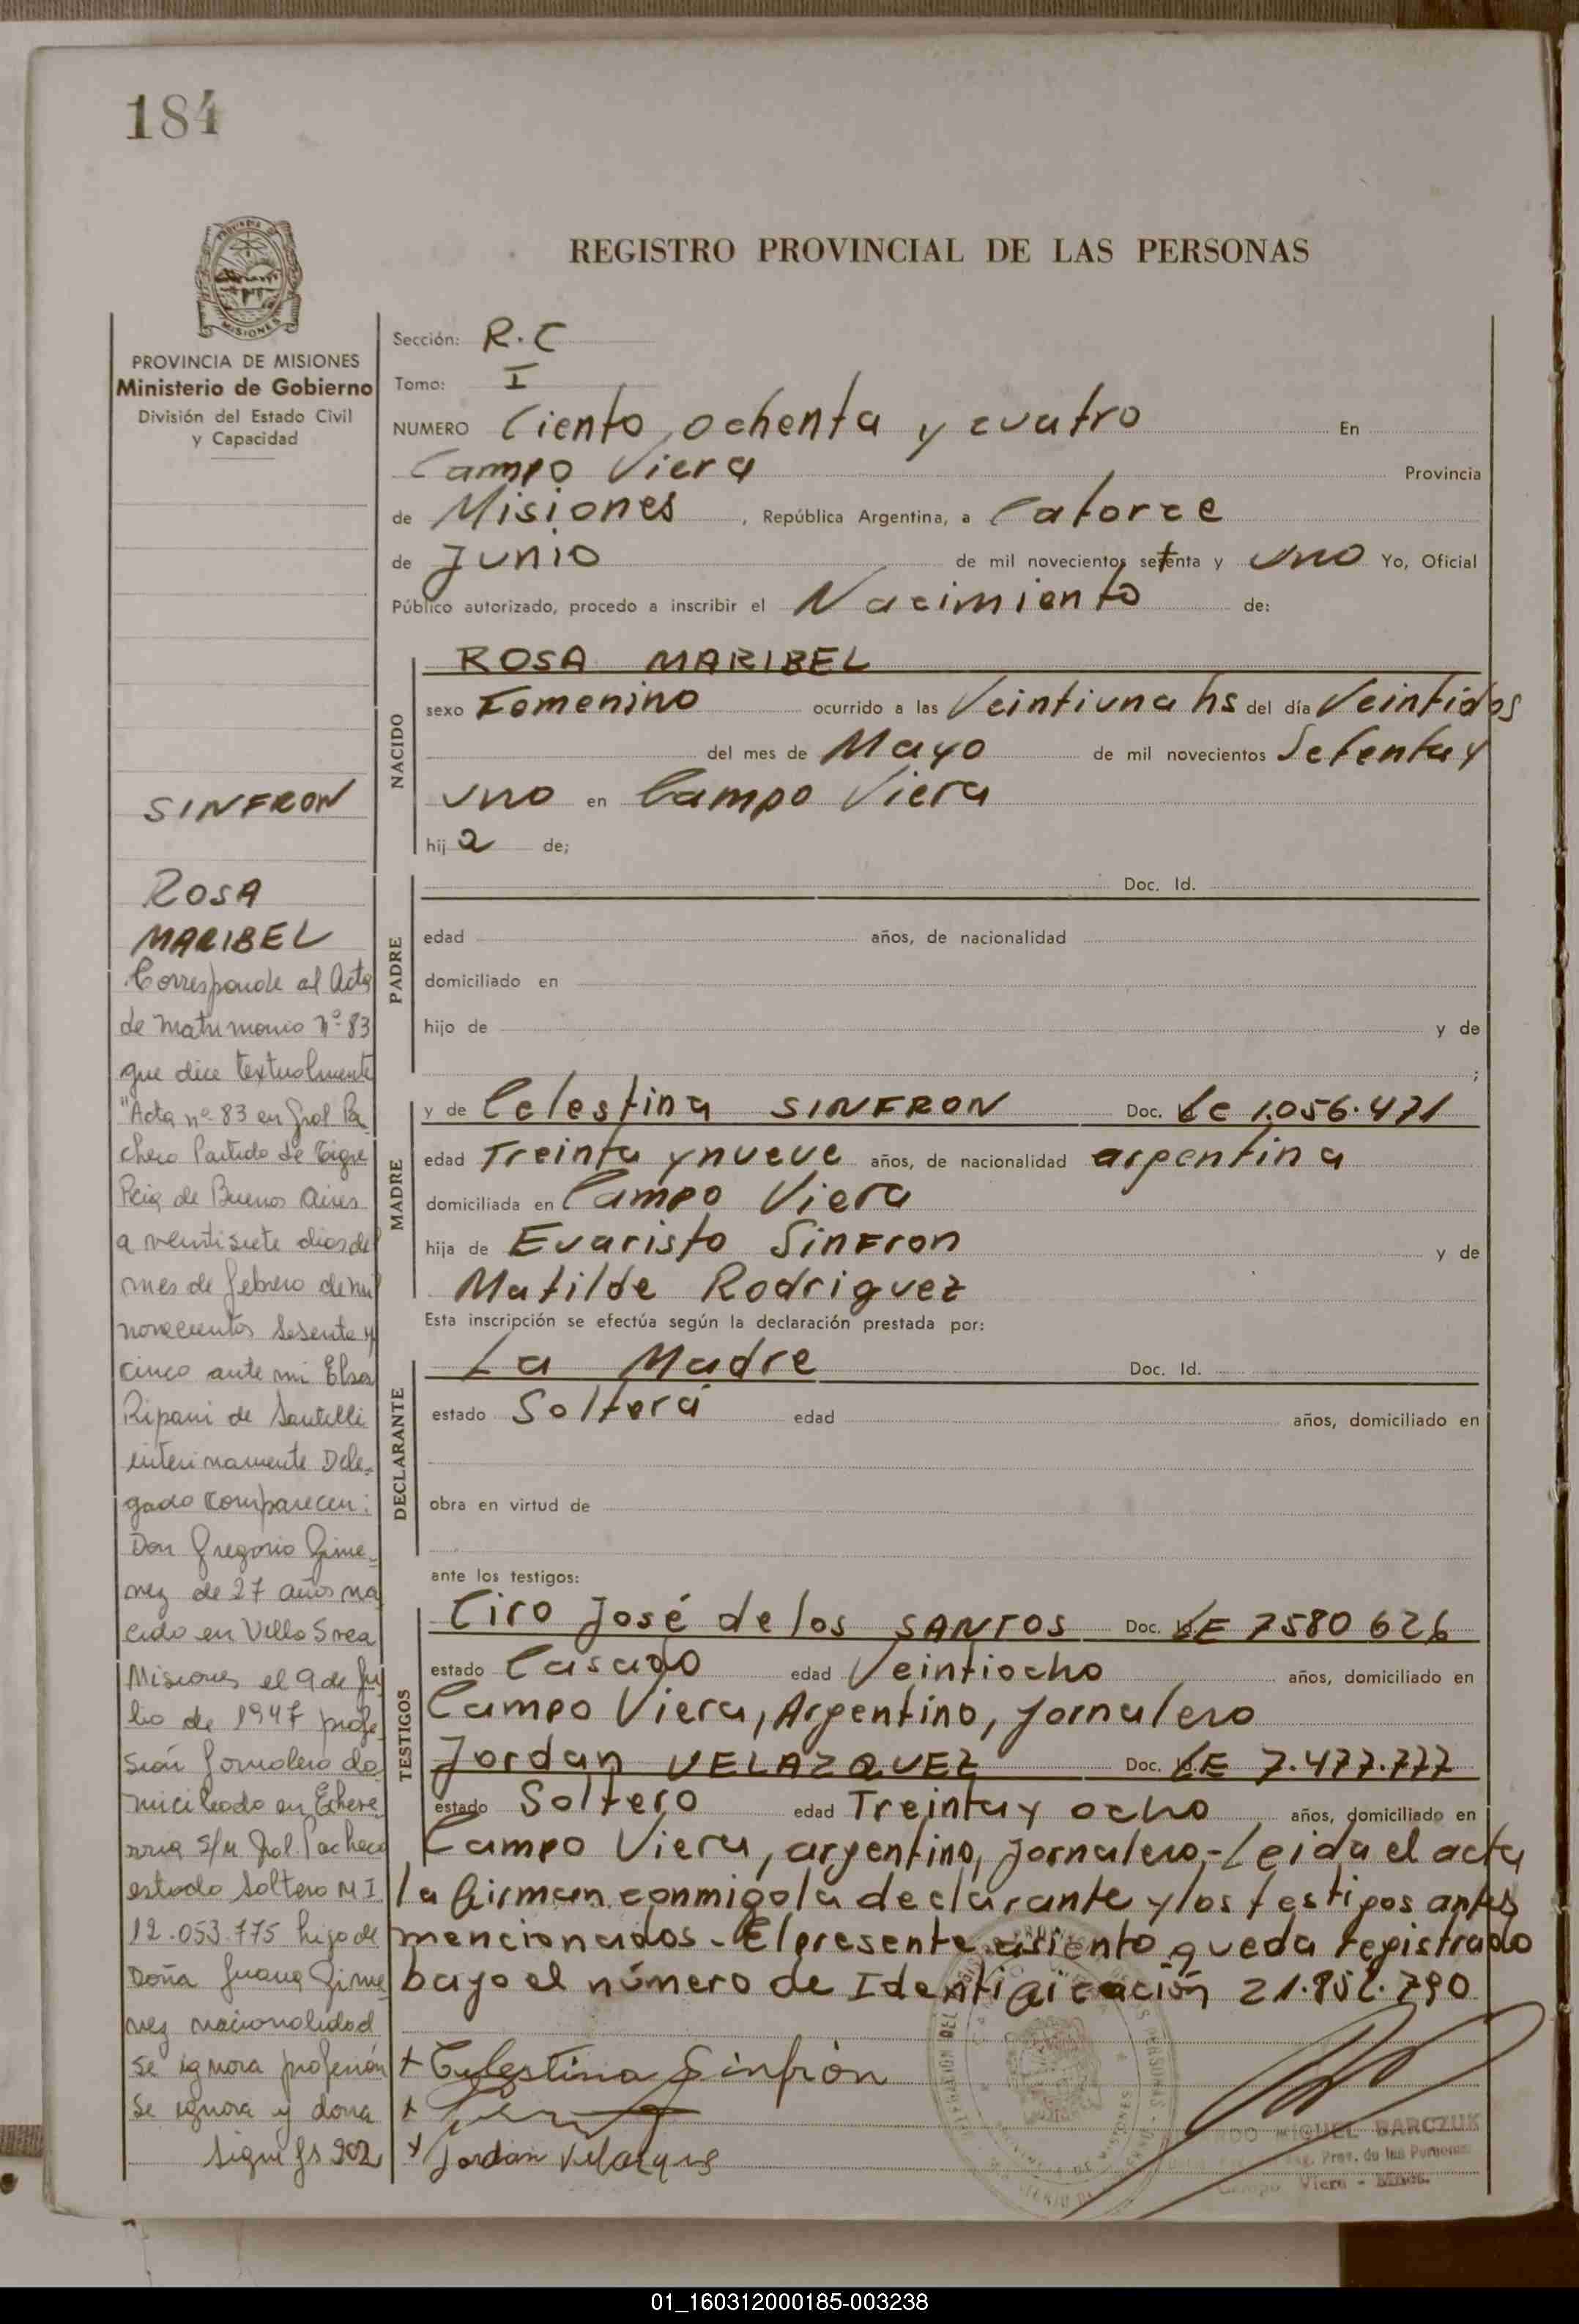 184
REGISTRO PROVINCIAL DE LAS PERSONAS
PROVINCIA DE MISIONES
Ministerio de Gobierno
División del Estado Civil
y Capacidad
SINFRON
ROSA
MARIBEL
Corresponde al Acta
de matrimonio nº 83
que dice textualmente
"Acta nº 83 en Gral Pa-
checo Partido de Tigre
Pcia de Buenos Aires
a veintisiete dias del
mes de febrero de mil
novecientos sesenta y
cinco ante mi Elsa
Ripani de Santilli
interinamente Dele-
gado comparecen:
Don Gregorio Gime-
nez de 27 años na
cido en Villa Svea
Misiones el 9 de Ju
lio de 1947 profe-
sión Jornalero do
miciliado en Echeve
rria S/n Gral. Pacheco
estado soltero M I
12.053.775 hijo de
Doña Juana Gime
nez nacionalidad
se ignora profesión
se ignora y dona
sigue fs 202
Sección: R.C
Tomo: I
NUMERO Ciento ochenta y cuatro En
Campo Viera Provincia
de Misiones, República Argentina, a Catorce
de Junio de mil novecientos setenta y uno Yo, Oficial
Público autorizado, procedo a inscribir el Nacimiento de:
NACIDO
ROSA MARIBEL
sexo Femenino ocurrido a las Veintiuna hs del día Veintidos
del mes de Mayo de mil novecientos Setenta y
uno en Campo Viera
hij a de;
PADRE
Doc. Id.
edad años, de nacionalidad
domiciliado en
hijo de y de
;
MADRE
y de Celestina SINFRON Doc. LC 1.056.471
edad Treinta y nueve años, de nacionalidad argentina
domiciliada en Campo Viera
hija de Evaristo Sinfron y de
Matilde Rodriguez
Esta inscripción se efectúa según la declaración prestada por:
DECLARANTE
La Madre Doc. Id.
estado Soltera edad años, domiciliado en
obra en virtud de
ante los testigos:
TESTIGOS
Ciro José de los SANTOS Doc. LE 7580 626
estado Casado edad Veintiocho años, domiciliado en
Campo Viera, Argentino, Jornalero
Jordan VELAZQUEZ Doc. LE 7.477.777
estado Soltero edad Treinta y ocho años, domiciliado en
Campo Viera, argentino, jornalero,- Leida el acta
la firman conmigo la declarante y los testigos antes
mencionados - El presente asiento queda registrado
bajo el número de Identificación 21.852.790
+ Celestina Sinfrón
+
+ Jordan Velazques
MIGUEL BARCZUK
Prov. de las Personas
Campo Viera - Mnes.
01_160312000185-003238